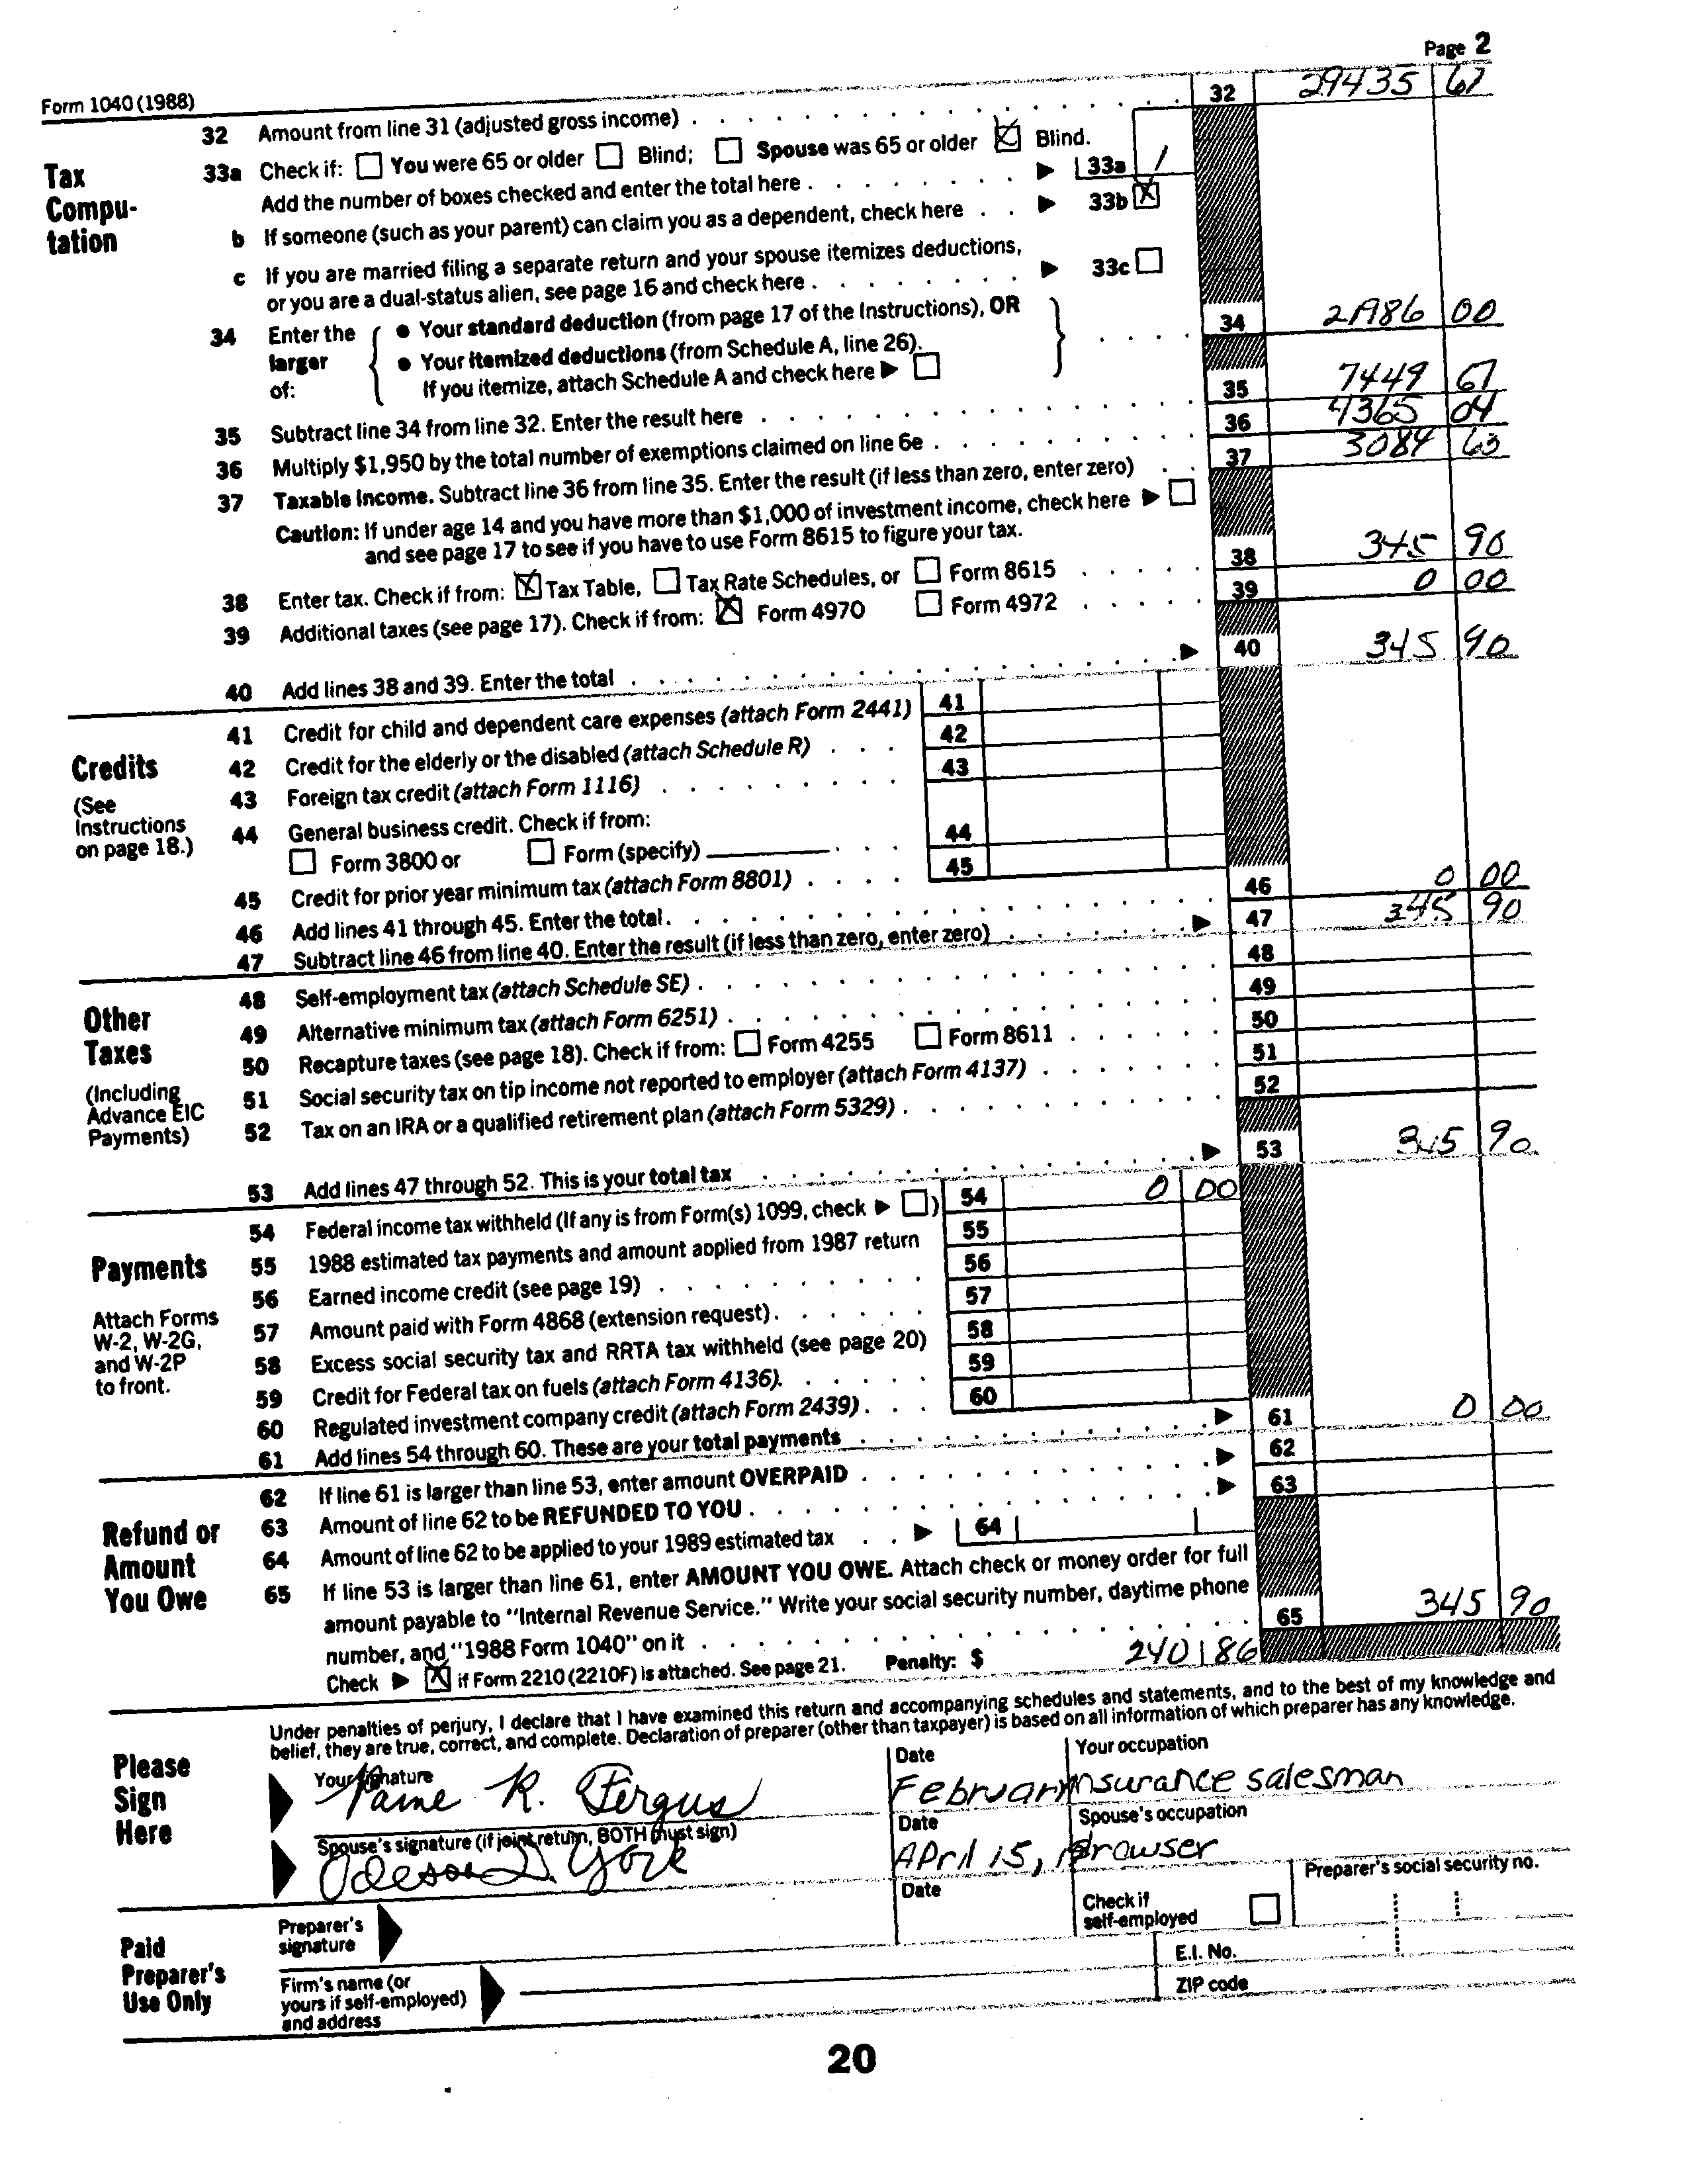 Page 2
Form 1040 (1988)
32 Amount from line 31 (adjusted gross income) 32 29435 67
Tax Computation
33a Check if: You were 65 or older Blind; Spouse was 65 or older Blind.
Add the number of boxes checked and enter the total here 33a 1
b If someone (such as your parent) can claim you as a dependent, check here 33b
c If you are married filing a separate return and your spouse itemizes deductions,
or you are a dual-status alien, see page 16 and check here 33c
34 Enter the larger of:
• Your standard deduction (from page 17 of the Instructions), OR
• Your itemized deductions (from Schedule A, line 26).
If you itemize, attach Schedule A and check here
34 00
35 Subtract line 34 from line 32. Enter the result here 35 7449 67
36 Multiply $1,950 by the total number of exemptions claimed on line 6e 36 4365 04
37 Taxable income. Subtract line 36 from line 35. Enter the result (if less than zero, enter zero) 37 3084 63
Caution: If under age 14 and you have more than $1,000 of investment income, check here
and see page 17 to see if you have to use Form 8615 to figure your tax.
38 Enter tax. Check if from: Tax Table, Tax Rate Schedules, or Form 8615 38 345 90
39 Additional taxes (see page 17). Check if from: Form 4970 Form 4972 39 0 00
40 Add lines 38 and 39. Enter the total 40 345 90
Credits
(See Instructions on page 18.)
41 Credit for child and dependent care expenses (attach Form 2441) 41
42 Credit for the elderly or the disabled (attach Schedule R) 42
43 Foreign tax credit (attach Form 1116) 43
44 General business credit. Check if from:
Form 3800 or Form (specify) 44
45 Credit for prior year minimum tax (attach Form 8801) 45
46 Add lines 41 through 45. Enter the total 46 0 00
47 Subtract line 46 from line 40. Enter the result (if less than zero, enter zero) 47 345 90
Other Taxes
(Including Advance EIC Payments)
48 Self-employment tax (attach Schedule SE) 48
49 Alternative minimum tax (attach Form 6251) 49
50 Recapture taxes (see page 18). Check if from: Form 4255 Form 8611 50
51 Social security tax on tip income not reported to employer (attach Form 4137) 51
52 Tax on an IRA or a qualified retirement plan (attach Form 5329) 52
53 Add lines 47 through 52. This is your total tax 53 345 90
Payments
Attach Forms W-2, W-2G, and W-2P to front.
54 Federal income tax withheld (If any is from Form(s) 1099, check ) 54 0 00
55 1988 estimated tax payments and amount applied from 1987 return 55
56 Earned income credit (see page 19) 56
57 Amount paid with Form 4868 (extension request) 57
58 Excess social security tax and RRTA tax withheld (see page 20) 58
59 Credit for Federal tax on fuels (attach Form 4136) 59
60 Regulated investment company credit (attach Form 2439) 60
61 Add lines 54 through 60. These are your total payments 61 0 00
Refund or Amount You Owe
62 If line 61 is larger than line 53, enter amount OVERPAID 62
63 Amount of line 62 to be REFUNDED TO YOU 63
64 Amount of line 62 to be applied to your 1989 estimated tax 64
65 If line 53 is larger than line 61, enter AMOUNT YOU OWE. Attach check or money order for full
amount payable to "Internal Revenue Service." Write your social security number, daytime phone
number, and "1988 Form 1040" on it 65 345 90
Check if Form 2210 (2210F) is attached. See page 21. Penalty: $ 240 86
Please Sign Here
Under penalties of perjury, I declare that I have examined this return and accompanying schedules and statements, and to the best of my knowledge and
belief, they are true, correct, and complete. Declaration of preparer (other than taxpayer) is based on all information of which preparer has any knowledge.
Your signature Date Your occupation
R. Fergus February insurance salesman
Spouse's signature (if joint return, BOTH must sign) Date Spouse's occupation
York April 15,
Paid Preparer's Use Only
Preparer's signature Date Check if self-employed Preparer's social security no.
Firm's name (or yours if self-employed) and address
E.I. No.
ZIP code
20